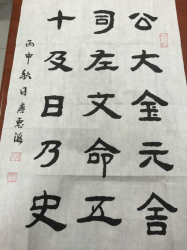 公大金元舍
司左文命五
十及日乃史
丙申秋日